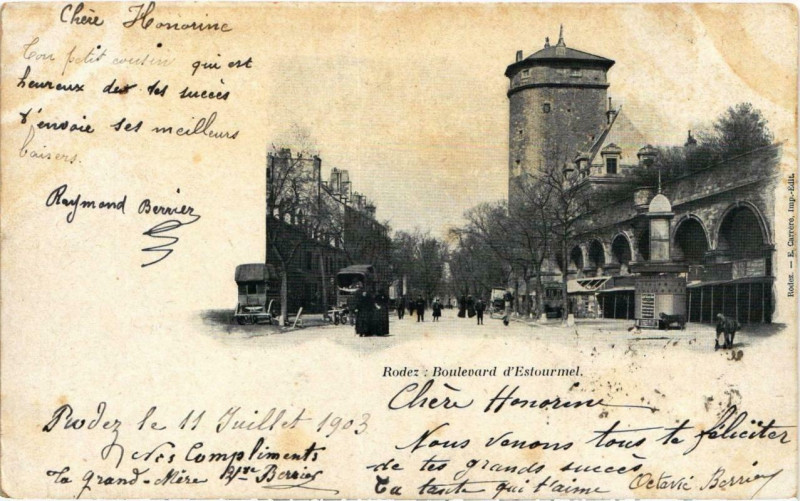 Chère Honorine
Ton petit cousin qui est
heureux des tes succès
t'envoie ses meilleurs
baisers.
Raymond Berrier
Rodez. — E. Carrère, Imp.-Édit.
Rodez : Boulevard d'Estourmel.
Rodez le 11 Juillet 1903
Nos Compliments
ta grand-Mère Berrier
Chère Honorine
Nous venons tous te féliciter
de tes grands succès
Ta tante qui t'aime Octavie Berrier